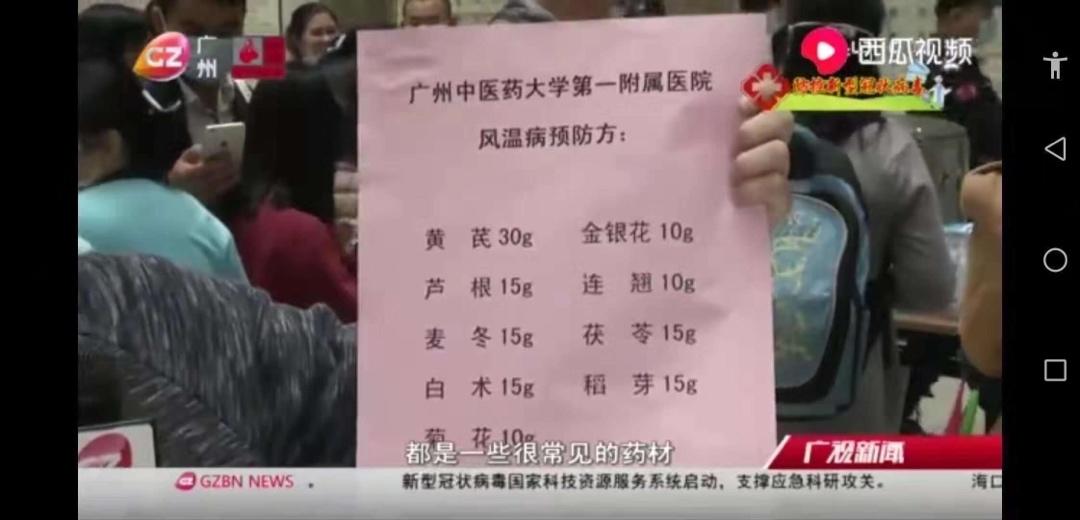 GZ
广州
西瓜视频
防控新型冠状病毒
广州中医药大学第一附属医院
风温病预防方：
黄 芪30g 金银花10g
芦 根15g 连 翘10g
麦 冬15g 茯 苓15g
白 术15g 稻 芽15g
菊 花10g
都是一些很常见的药材
广视新闻
GZBN NEWS
新型冠状病毒国家科技资源服务系统启动，支撑应急科研攻关。
海口